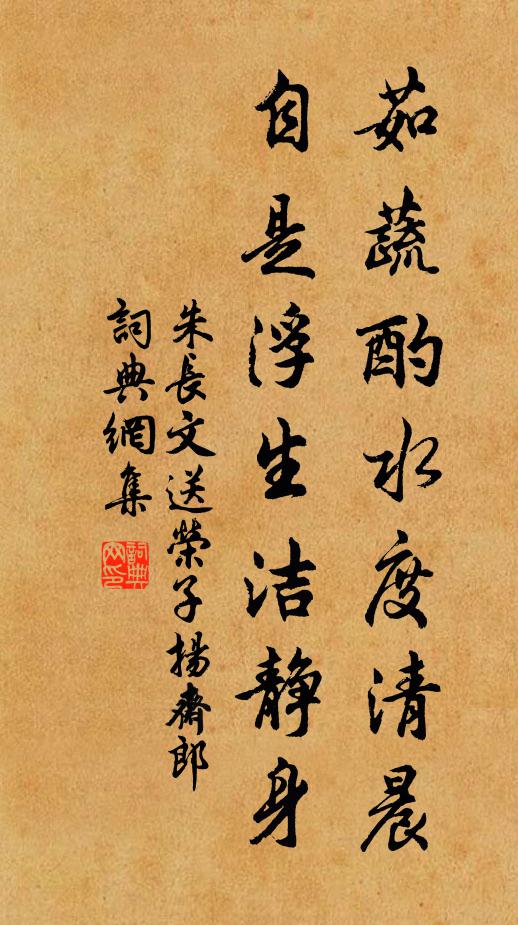 茹蔬酌水度清晨
自是浮生洁静身
朱長文送榮子揚齋郎
詞典網集
詞典网印